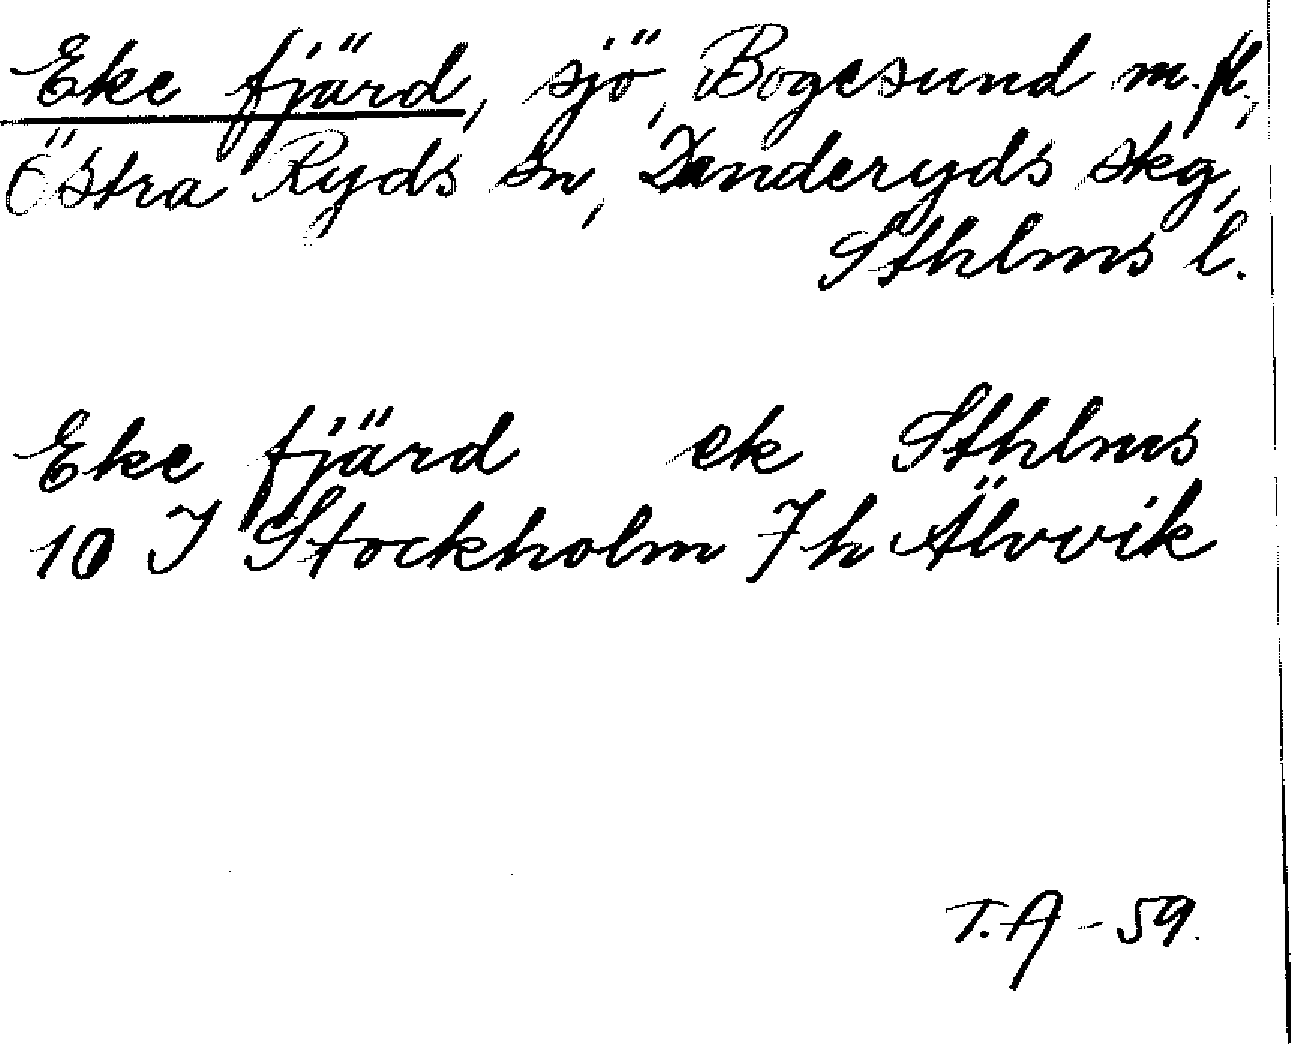 Eke fjärd, sjö, Bogesund m.fl.,
Östra Ryds sn, Danderyds skg,
Sthlms l.
Eke fjärd ek Sthlms
10 I Stockholm 7h Älvvik
T.A - 59.